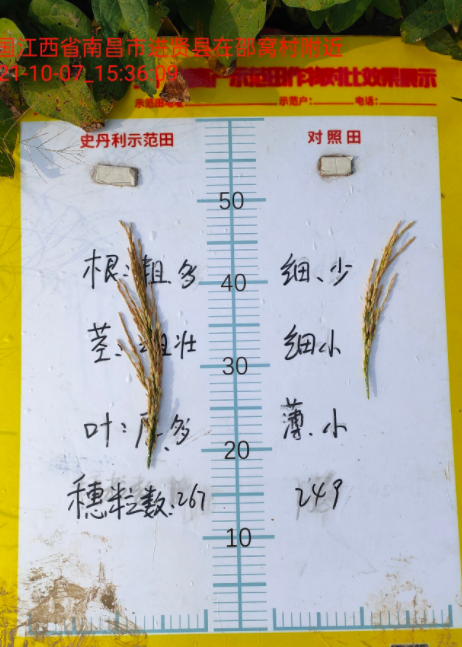 国江西省南昌市进贤县在邵窝村附近
21-10-07_15:36:09
示范田作物对比效果展示
示范户: 电话:
史丹利示范田 对照田
50
根:粗多 细、少
40
茎:粗壮 细小
30
叶:厚、多 薄、小
20
穗粒数:267 249
10